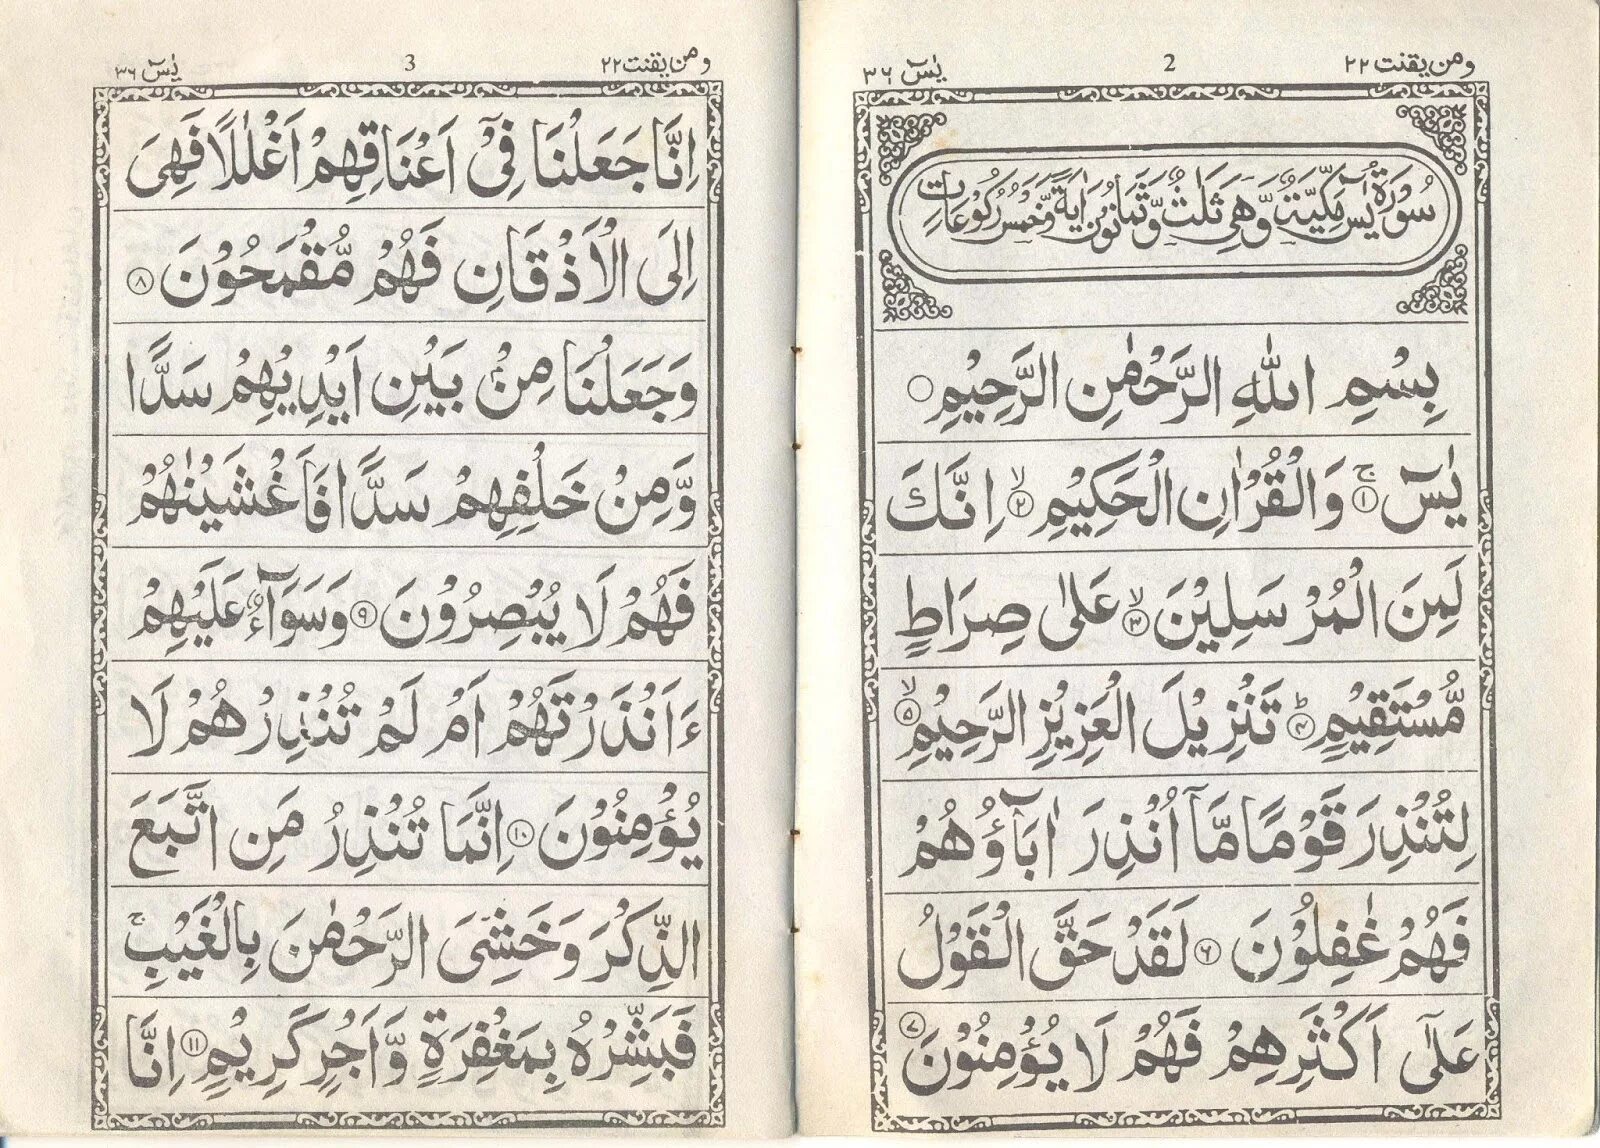 ومن يقنت ٢٢ 2 يٰسٓ ٣٦
سُوْرَةُ يٰسٓ مَكِّيَّةٌ وَّهِيَ ثَلٰثٌ وَّثَمَانُوْنَ اٰيَةً وَّخَمْسُ رُكُوْعَاتٍ
بِسْمِ اللّٰهِ الرَّحْمٰنِ الرَّحِيْمِ ○
يٰسٓ ۚ﴿١﴾ وَالْقُرْاٰنِ الْحَكِيْمِ ۙ﴿٢﴾ اِنَّكَ
لَمِنَ الْمُرْسَلِيْنَ ۙ﴿٣﴾ عَلٰى صِرَاطٍ
مُّسْتَقِيْمٍ ؕ﴿۴﴾ تَنْزِيْلَ الْعَزِيْزِ الرَّحِيْمِ ۙ﴿۵﴾
لِتُنْذِرَ قَوْمًا مَّاۤ اُنْذِرَ اٰبَآؤُهُمْ
فَهُمْ غٰفِلُوْنَ ﴿۶﴾ لَقَدْ حَقَّ الْقَوْلُ
عَلٰٓى اَكْثَرِهِمْ فَهُمْ لَا يُؤْمِنُوْنَ ﴿٧﴾
ومن يقنت ٢٢ 3 يٰسٓ ٣٦
اِنَّا جَعَلْنَا فِيْۤ اَعْنَاقِهِمْ اَغْلٰلًا فَهِيَ
اِلَى الْاَذْقَانِ فَهُمْ مُّقْمَحُوْنَ ﴿٨﴾
وَجَعَلْنَا مِنْۢ بَيْنِ اَيْدِيْهِمْ سَدًّا
وَّمِنْ خَلْفِهِمْ سَدًّا فَاَغْشَيْنٰهُمْ
فَهُمْ لَا يُبْصِرُوْنَ ﴿٩﴾ وَسَوَآءٌ عَلَيْهِمْ
ءَاَنْذَرْتَهُمْ اَمْ لَمْ تُنْذِرْهُمْ لَا
يُؤْمِنُوْنَ ﴿١٠﴾ اِنَّمَا تُنْذِرُ مَنِ اتَّبَعَ
الذِّكْرَ وَخَشِيَ الرَّحْمٰنَ بِالْغَيْبِ ۚ
فَبَشِّرْهُ بِمَغْفِرَةٍ وَّاَجْرٍ كَرِيْمٍ ﴿١١﴾ اِنَّا